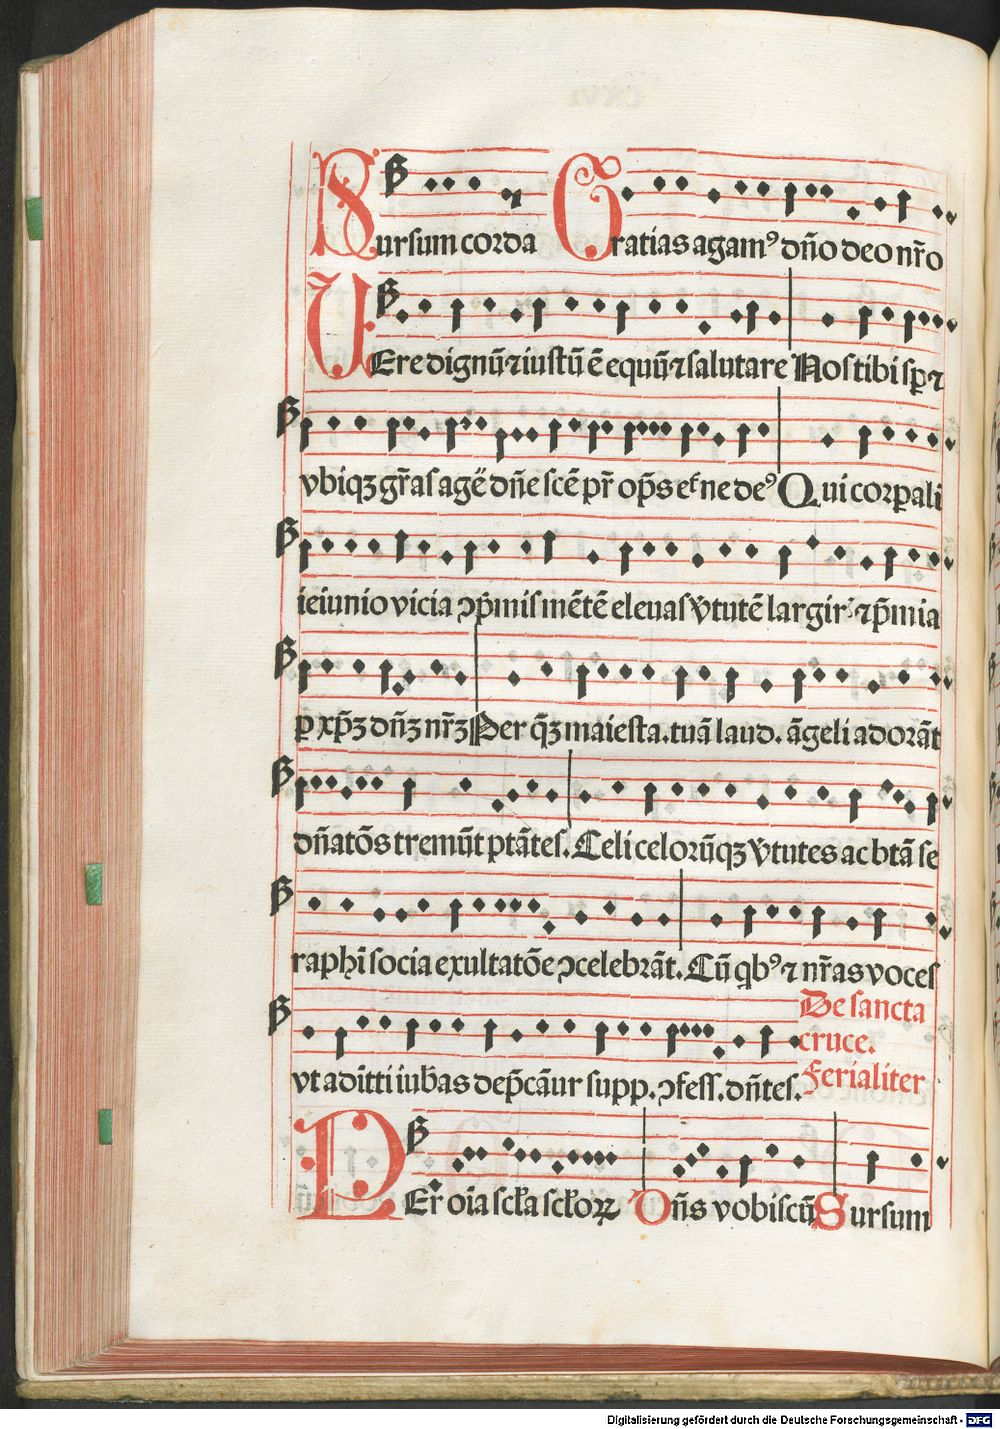 Sursum corda Gratias agamꝰ dño deo nr̃o
VEre dignũ ⁊ iustũ ẽ equũ ⁊ salutare Nos tibi sꝑ ⁊
vbiqꝫ gr̃as agẽ dñe scẽ pr̃ op̃s et̾ne deꝰ Qui corꝑali
ieiunio vicia ↄp̃mis mẽtẽ eleuas v̾tutẽ largir̾ ⁊ p̃mia
ꝑ xp̃ꝫ dñꝫ nr̃ꝫ Per q̃ꝫ maiesta. tuã laud. ãgeli adorãt
dñatõs tremũt ptãtes. Celi celorũqꝫ v̾tutes ac btã se
raphĩ socia exultatõe ↄcelebrãt. Cũ qbꝰ ⁊ nr̃as voces
vt aditti iub̾as dep̃cãur supp. ↄfess. dñtes.
De sancta
cruce.
Ferialiter
PEr̾ oĩa scła scłoꝝ Dñs vobiscũ Sursum
Digitalisierung gefördert durch die Deutsche Forschungsgemeinschaft - DFG